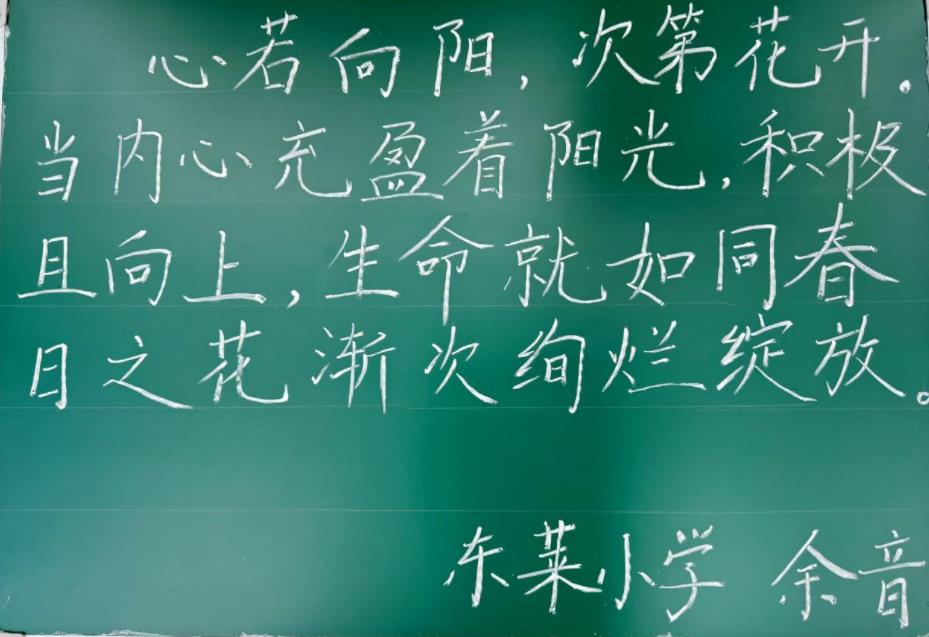 心若向阳，次第花开。
当内心充盈着阳光，积极
且向上，生命就如同春
日之花渐次绚烂绽放。
东莱小学 余音